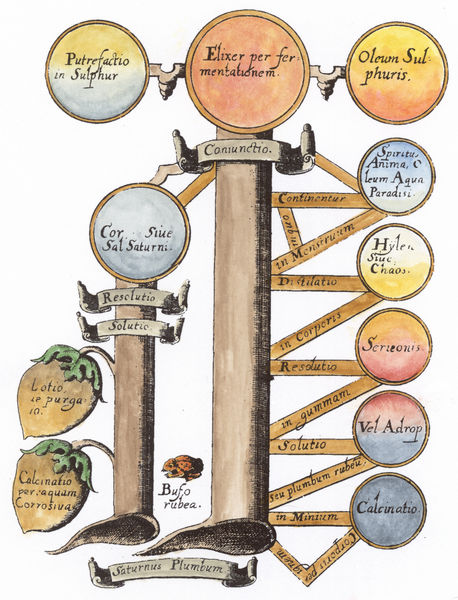 Putrefactio
in Sulphur
Elixer per fer-
mentationem.
Oleum Sul-
phuris.
Coniunctio.
Spiritus
Anima, O
leum Aqua
Paradisi.
Continentur
in Menstruum
Cor Siue
Sal Saturni.
Hylen
Siue
Chaos.
Distilatio
Resolutio
Solutio
in Corporis
Sericonis.
Resolutio
Lotio
purga
io.
in gummam
Vel Adrop
Solutio
Calcinatio
per aquam
Corrosiva
Bufo
rubea.
seu plumbum rubeu,
in Minium
Calcinatio.
Corporis per
Saturnus Plumbum